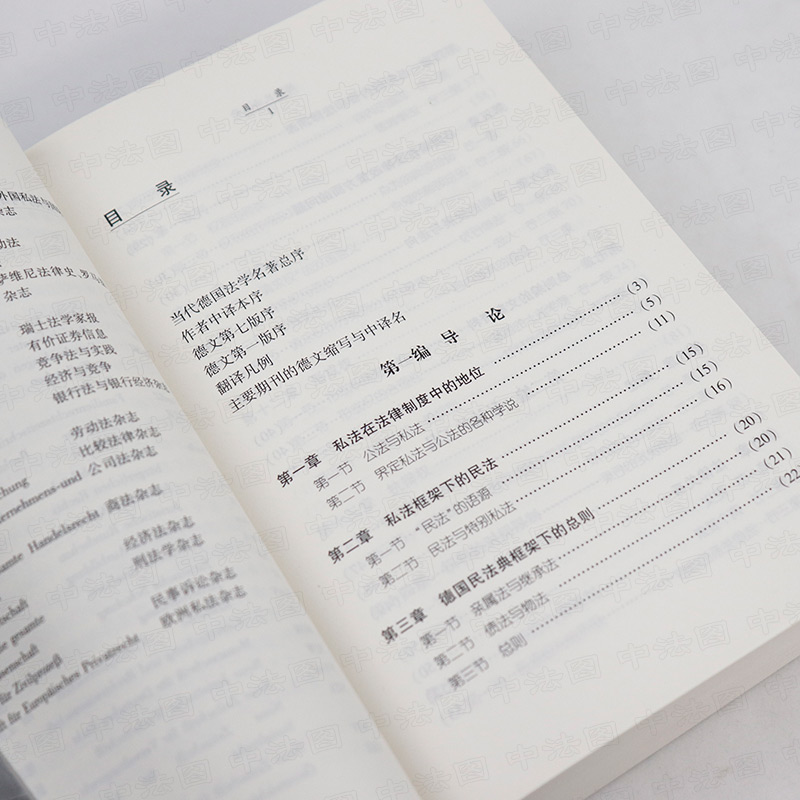 外国私法与
杂志
动法
萨维尼法律史,罗
杂志
瑞士法学家报
有价证券信息
竞争法与实践
经济与竞争
银行法与银行经济杂志
劳动法杂志
比较法律杂志
公司法杂志
chung
ernehmens-und
amte Handelsrecht 商法杂志
经济法杂志
刑法学杂志
schaft
e gesamte
senschaft
für Zeilprozeß 民事诉讼杂志
ft für Europäischen Privatrecht 欧洲私法杂志
目录
1
目 录
当代德国法学名著总序
作者中译本序
德文第七版序
德文第一版序
翻译凡例
主要期刊的德文缩写与中译名
第一编 导 论
第一章 私法在法律制度中的地位 (3)
第一节 公法与私法 (5)
第二节 界定私法与公法的各种学说 (11)
第二章 私法框架下的民法 (15)
第一节 “民法”的语源 (15)
第二节 民法与特别私法 (16)
第三章 德国民法典框架下的总则 (20)
第一节 亲属法与继承法 (20)
第二节 债法与物法 (21)
第三节 总则 (22
中法图